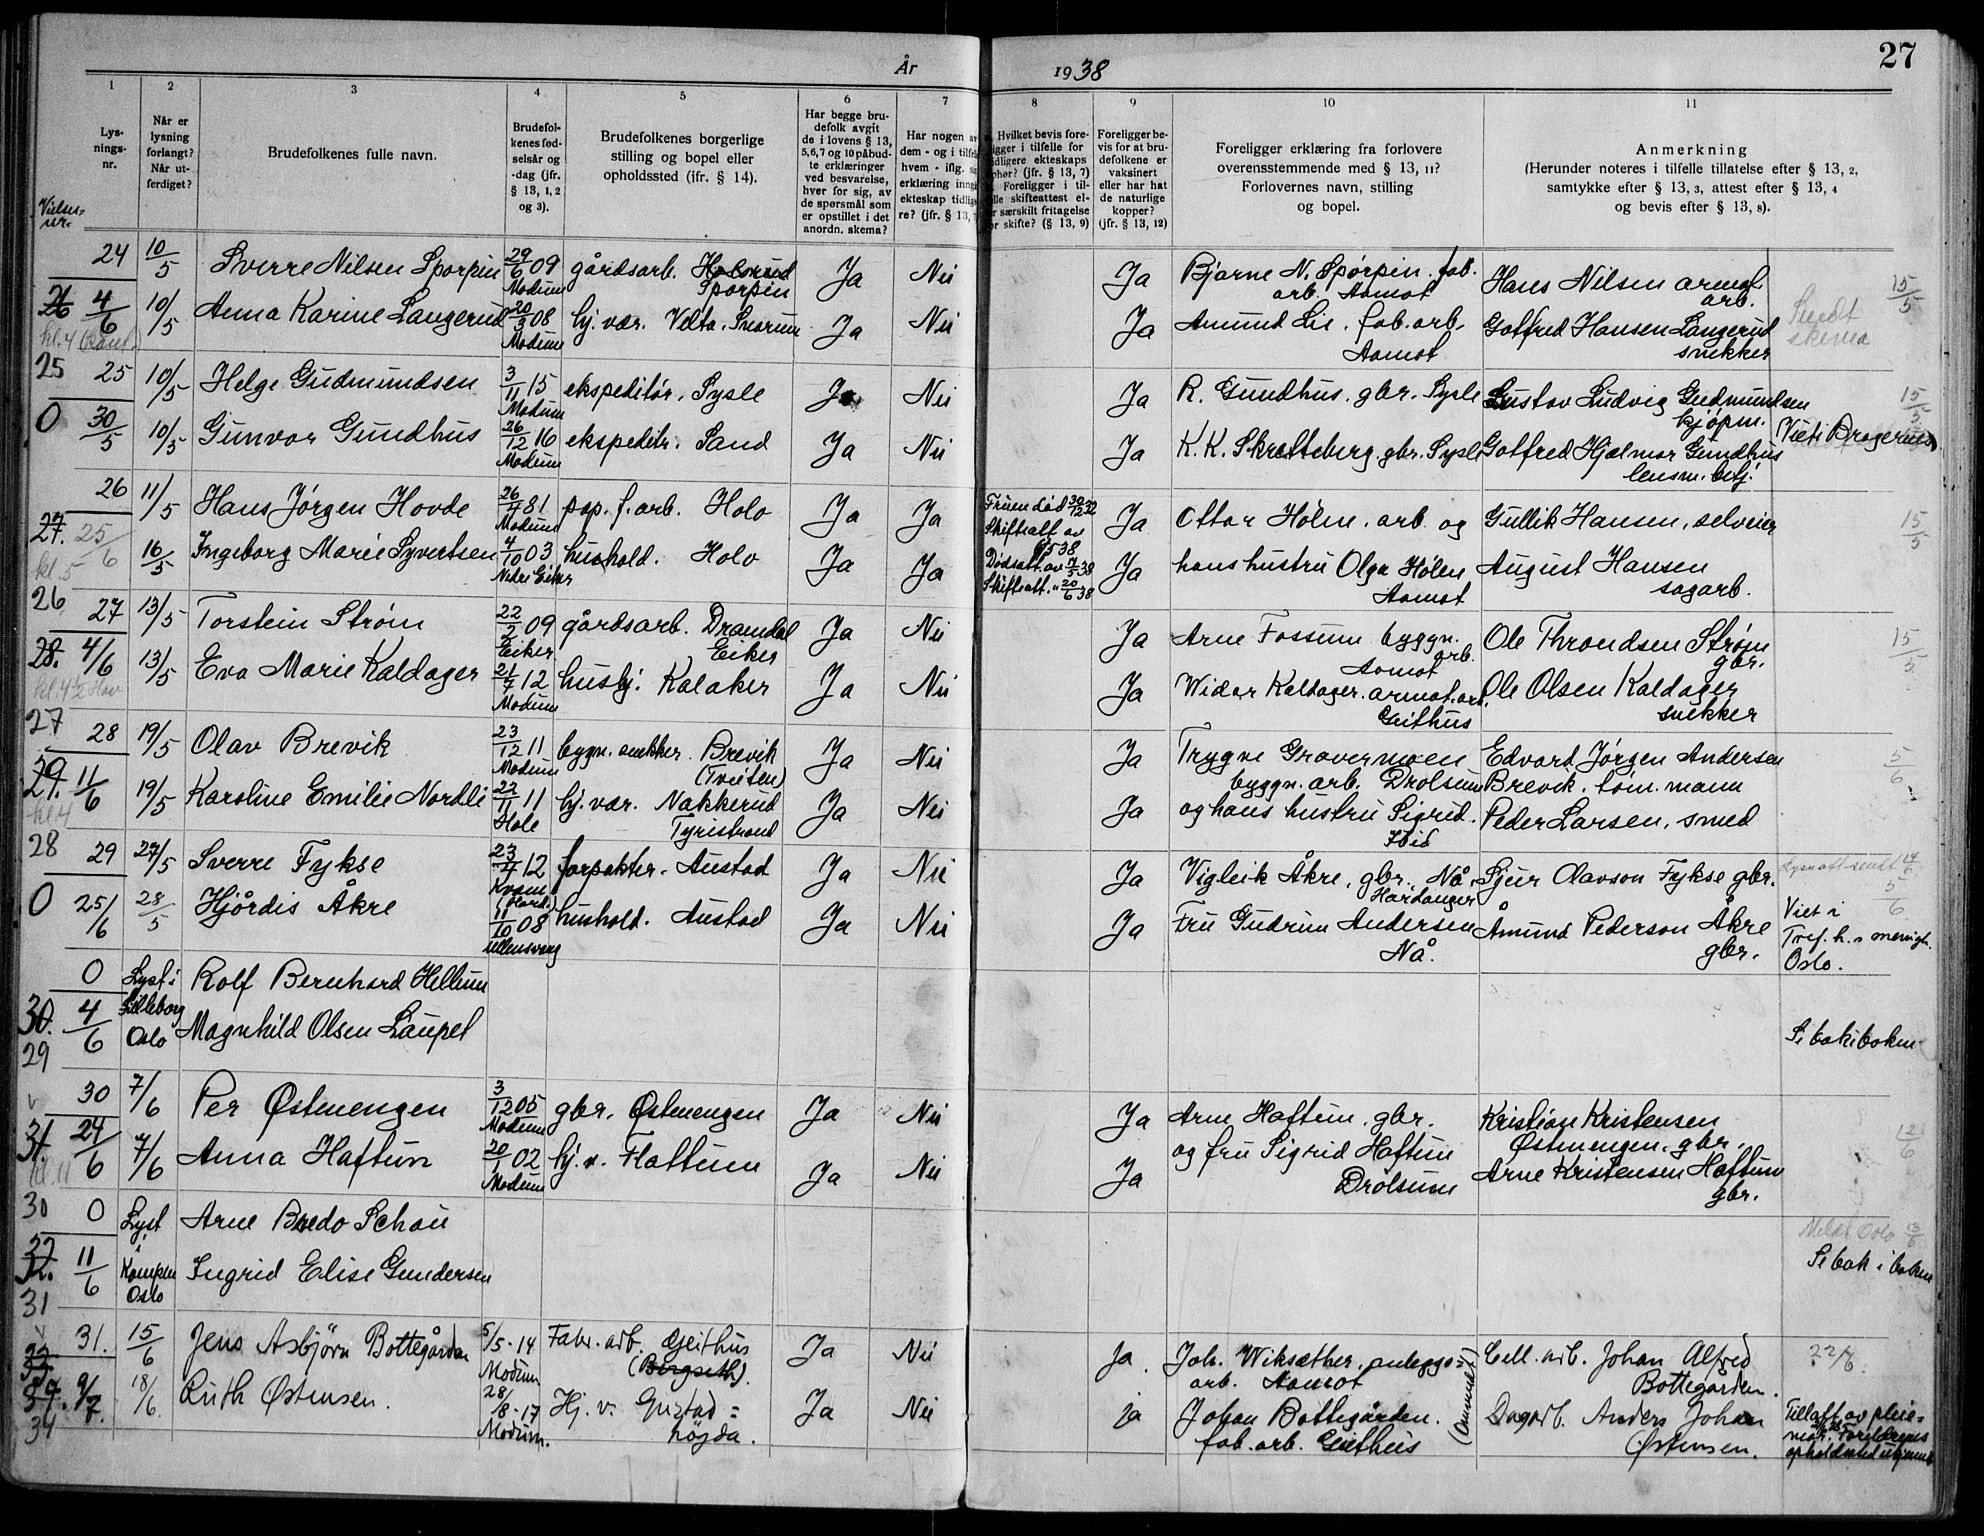 År 1938
27
1
2
3
4
5
6
7
8
9
10
11
Lys-
nings-
nr.
Når er
lysning
forlangt?
Når ut-
ferdiget?
Brudefolkenes fulle navn.
Brudefol-
kenes fød-
selsår og
-dag (jfr.
§ 13, 1, 2
og 3).
Brudefolkenes borgerlige
stilling og bopel eller
opholdssted (ifr. § 14).
Har begge bru-
defolk avgit
de i lovens § 13,
5,6,7 og 10 påbud-
te erklæringer
ved besvarelse,
hver for sig, av
de spørsmål som
er opstillet i det
anordn. skema?
Har nogen av
dem - og i tilfelle
hvem - iflg. sin
erklæring inngå
ekteskap tidlige
re? (jfr. § 13,
Hvilket bevis fore-
ligger i tilfelle for
tidligere ekteskaps
ophør? (jfr. § 13, 7)
Foreligger i til-
felle skifteattest el-
r særskilt fritagelse
or skifte? (§ 13, 9)
Foreligger be-
vis for at bru-
defolkene er
vaksinert
eller har hat
de naturlige
kopper?
(jfr. § 13, 12)
Foreligger erklæring fra forlovere
overensstemmende med § 13, 11?
Forlovernes navn, stilling
og bopel.
Anmerkning
(Herunder noteres i tilfelle tillatelse efter § 13, 2,
samtykke efter § 13, 3, attest efter § 13, 4
og bevis efter § 13, 8).
Vielses-
nr.
24 10/5 Sverre Nilsen Sporpin 29/6 09 gårdsarb. Holsrud Ja Nei Ja Bjarne N. Spørpin. fab. Hans Nilsen armat. 15/5
Modum Sporpin arb. Aamot arb.
26 4/6 10/5 Anna Karine Langerud 20/3 08 hj. vær. Velta. Snarum Ja Nei Ja Amund Lie. fab. arb. Gotfred Hansen Langerud Sendt
kl. 4 Modum Aamot snekker skema
25 25 10/5 Helge Gudmundsen 3/11 15 ekspeditør. Sysle Ja Nei Ja R. Gundhus. gbr. Sysle Gustav Ludvig Gudmundsen 15/5
Modum kjøpm.
0 30/5 10/5 Gunvor Gundhus 26/12 16 ekspeditr. Sand Ja Nei Ja K. K. Skretteberg. gbr. Sysle Gotfred Hjalmar Gundhus (Viet i Bragernes)
Modum lensm. betj.
26 11/5 Hans Jørgen Hovde 26/7 81 pap. f. arb. Holo Ja Ja Fruen død 30/12 22 Ja Ottar Holm. arb. og Gullik Hansen, selveier 15/5
Modum Skifteatt av
27. 25/6 16/5 Ingeborg Marie Syvertsen 4/10 03 hushold. Holo Ja Ja Dødsatt. av 7/5 38 Ja hans hustru Olga Holen August Hansen
kl. 5 Nedre Eiker Skifteatt. " 20/6 38 Aamot sagarb.
26 27 13/5 Torstein Strøm 22/2 09 gårdsarb. Dramdal Ja Nei Ja Arne Fossum byggn. Ole Throndsen Strøm 15/5
Eiker Eiker arb. Aamot gbr.
28. 4/6 13/5 Eva Marie Kaldager 21/7 12 hushj. Kalaker Ja Nei Ja Widar Kaldager. armat. arb. Ole Olsen Kaldager
kl. 4 1/2 Modum Geithus snekker
27 28 19/5 Olav Brevik 23/12 11 bygn. snekker. Brevik Ja Nei Ja Trygve Gravermoen Edvard Jørgen Andersen 5/6
Modum (Tveiten) byggn. arb. Drolsum Brevik. tøm. mann
29. 11/6 19/5 Karoline Emilie Nordli 22/11 11 hj. vær. Nakkerud Ja Nei Ja og hans hustru Sigrid. Peder Larsen, smed
kl 4 Hole Tyristrand Ibid
28 29 27/5 Sverre Fykse 23/7 12 forpakter. Austad Ja Nei Ja Vigleik Åkre, gbr. Nå, Sjur Olavson Fykse gbr. 14/6
Kvam (Hard.) Hardanger 5/6
0 25/6 28/5 Hjørdis Åkre 11/10 08 hushold. Austad Ja Nei Ja Fru Gudrun Andersen Åmund Pederson Åkre Viet i
Ullensvang Nå. gbr. Tref. h.s menigh.
Oslo.
0 Lyst i Rolf Bernhard Hellum
30. 4/6 Lilleborg Magnhild Olsen Laupet Se bak i boken
29 Oslo
30 7/6 Per Østmengen 3/12 05 gbr. Østmengen Ja Nei Ja Arne Haftun. gbr. Kristian Kristensen
Modum Østmengen. gbr. 12/6
31. 24/6 7/6 Anna Haftun 20/1 02 hj. v. Flattum Ja Nei Ja og fru Sigrid Haftun Arne Kristensen Haftum
kl. 11 Modum Drolsum gbr.
30 0 Lyst Arne Bredo Schou Meldt Oslo 13/6
32. 11/6 i Kampen Ingrid Elise Gundersen Se bak i boken
31 Oslo
31. 15/6 Jens Asbjørn Bottegården 5/5-14 Fabr. arb. Geithus Ja Nei ja. Joh. Wiksæther, anleggs= Cell. arb. Johan Alfred 22/6
Modum (Borgseth). arb. Aamot Bottegården.
34. 9/7. 18/6. Ruth Østensen. 28/8-17 Hj. v. Gustad= Ja Nei ja Johan Bottegården. Dagarb. Anders Johan Tillatt. av pleie=
34 Modum. högda. fab. arb. Geithus Østensen. mor. Foreldrenes
opholdssted ukjennt